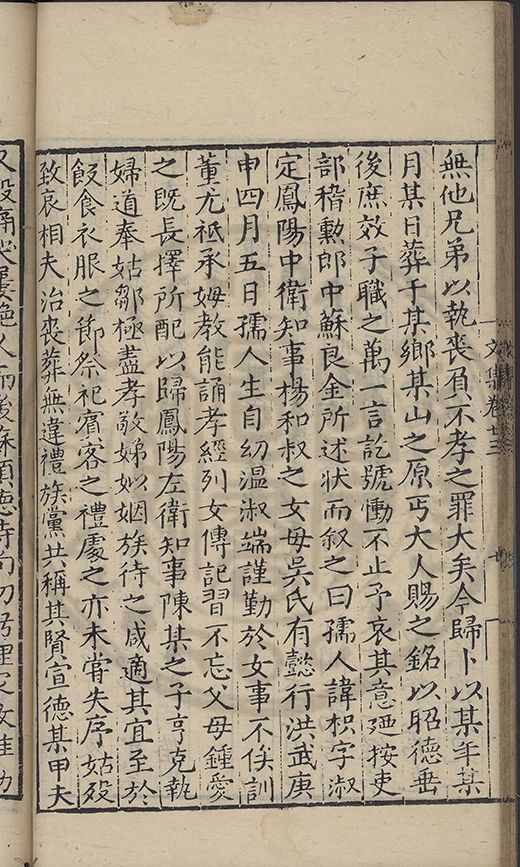 無他兄弟以執喪負不孝之罪大矣今歸卜以某年某
月某日葬于某鄉某山之原丐大人賜之銘以昭德垂
後庶效子職之萬一言訖號慟不止予哀其意廼按吏
部稽勳郎中蘇良金所述状而叙之曰孺人諱枳字淑
定鳳陽中衛知事楊和叔之女母吳氏有懿行洪武庚
申四月五日孺人生自幼温淑端謹勤於女事不俟訓
董尤祇承姆教能誦孝經列女傳記習不忘父母鍾愛
之既長擇所配以歸鳳陽左衛知事陳某之子亨克執
婦道奉姑鄒極盡孝敬娣姒姻族待之咸適其宜至於
飲食衣服之節祭祀賓客之禮處之亦未甞失序姑殁
致哀相夫治喪葬無違禮族黨共稱其賢宣德某甲夫
文集卷廿三